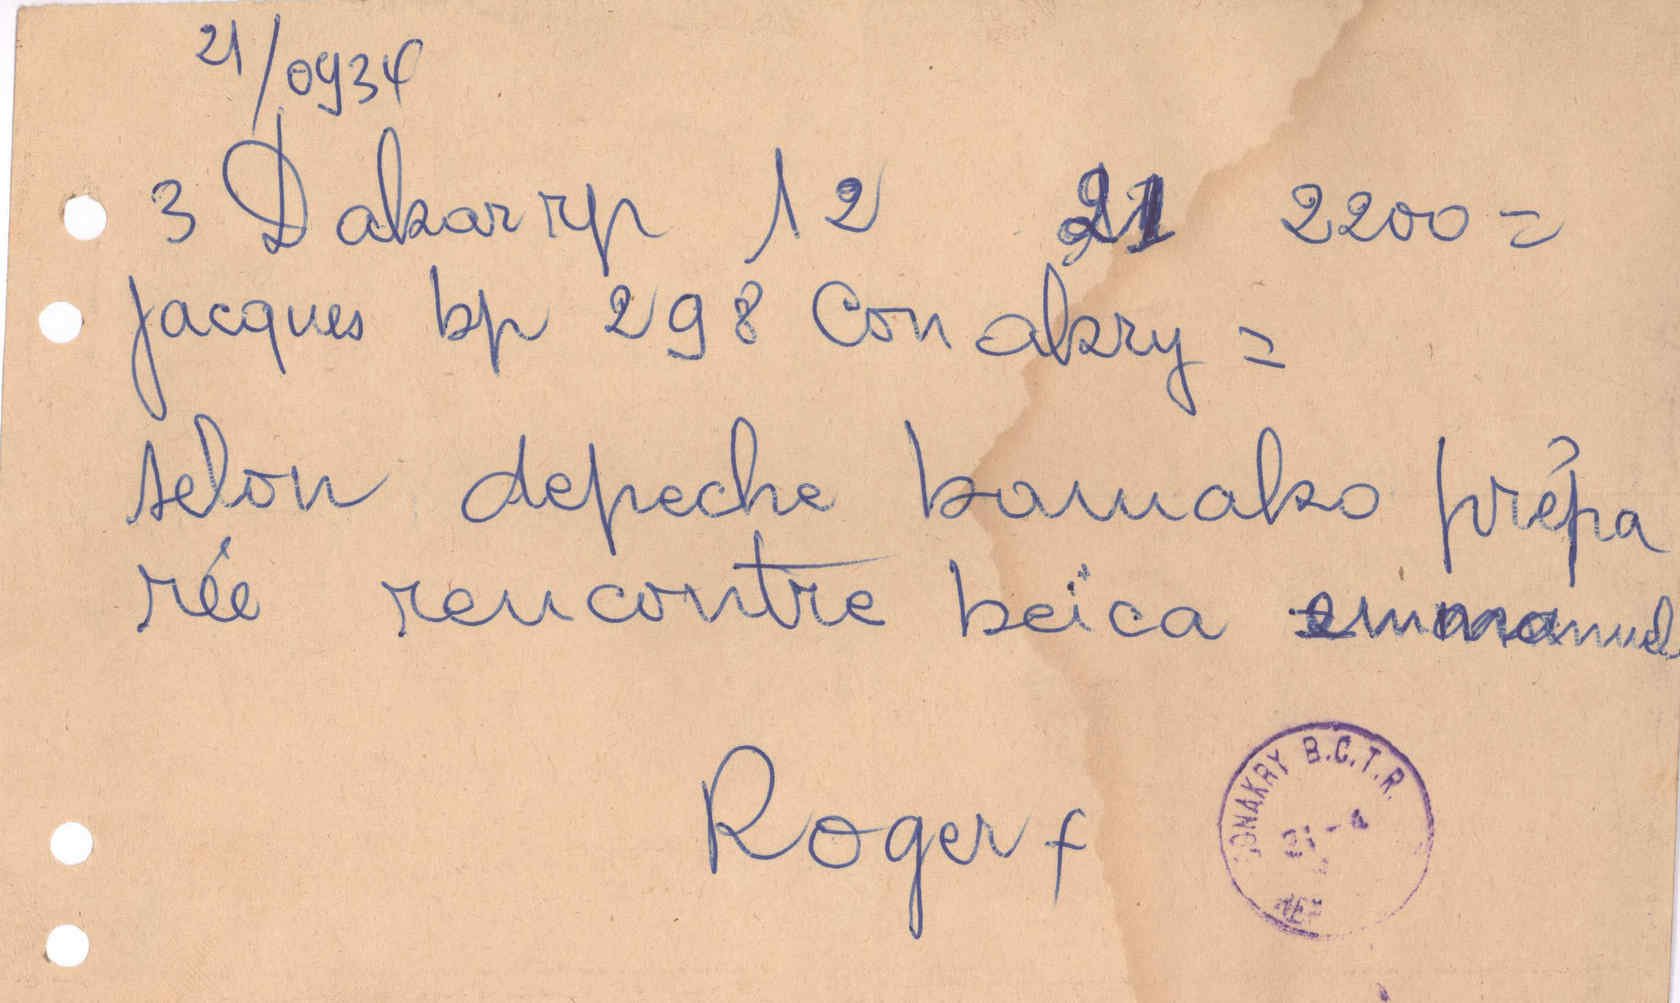 21/0934
3 Dakar rp 12 21 2200=
jacques bp 298 Conakry=
selon depeche bamako prépa
rée rencontre beïca emmanuel
Roger +
CONAKRY B.C.T.R.
21-4